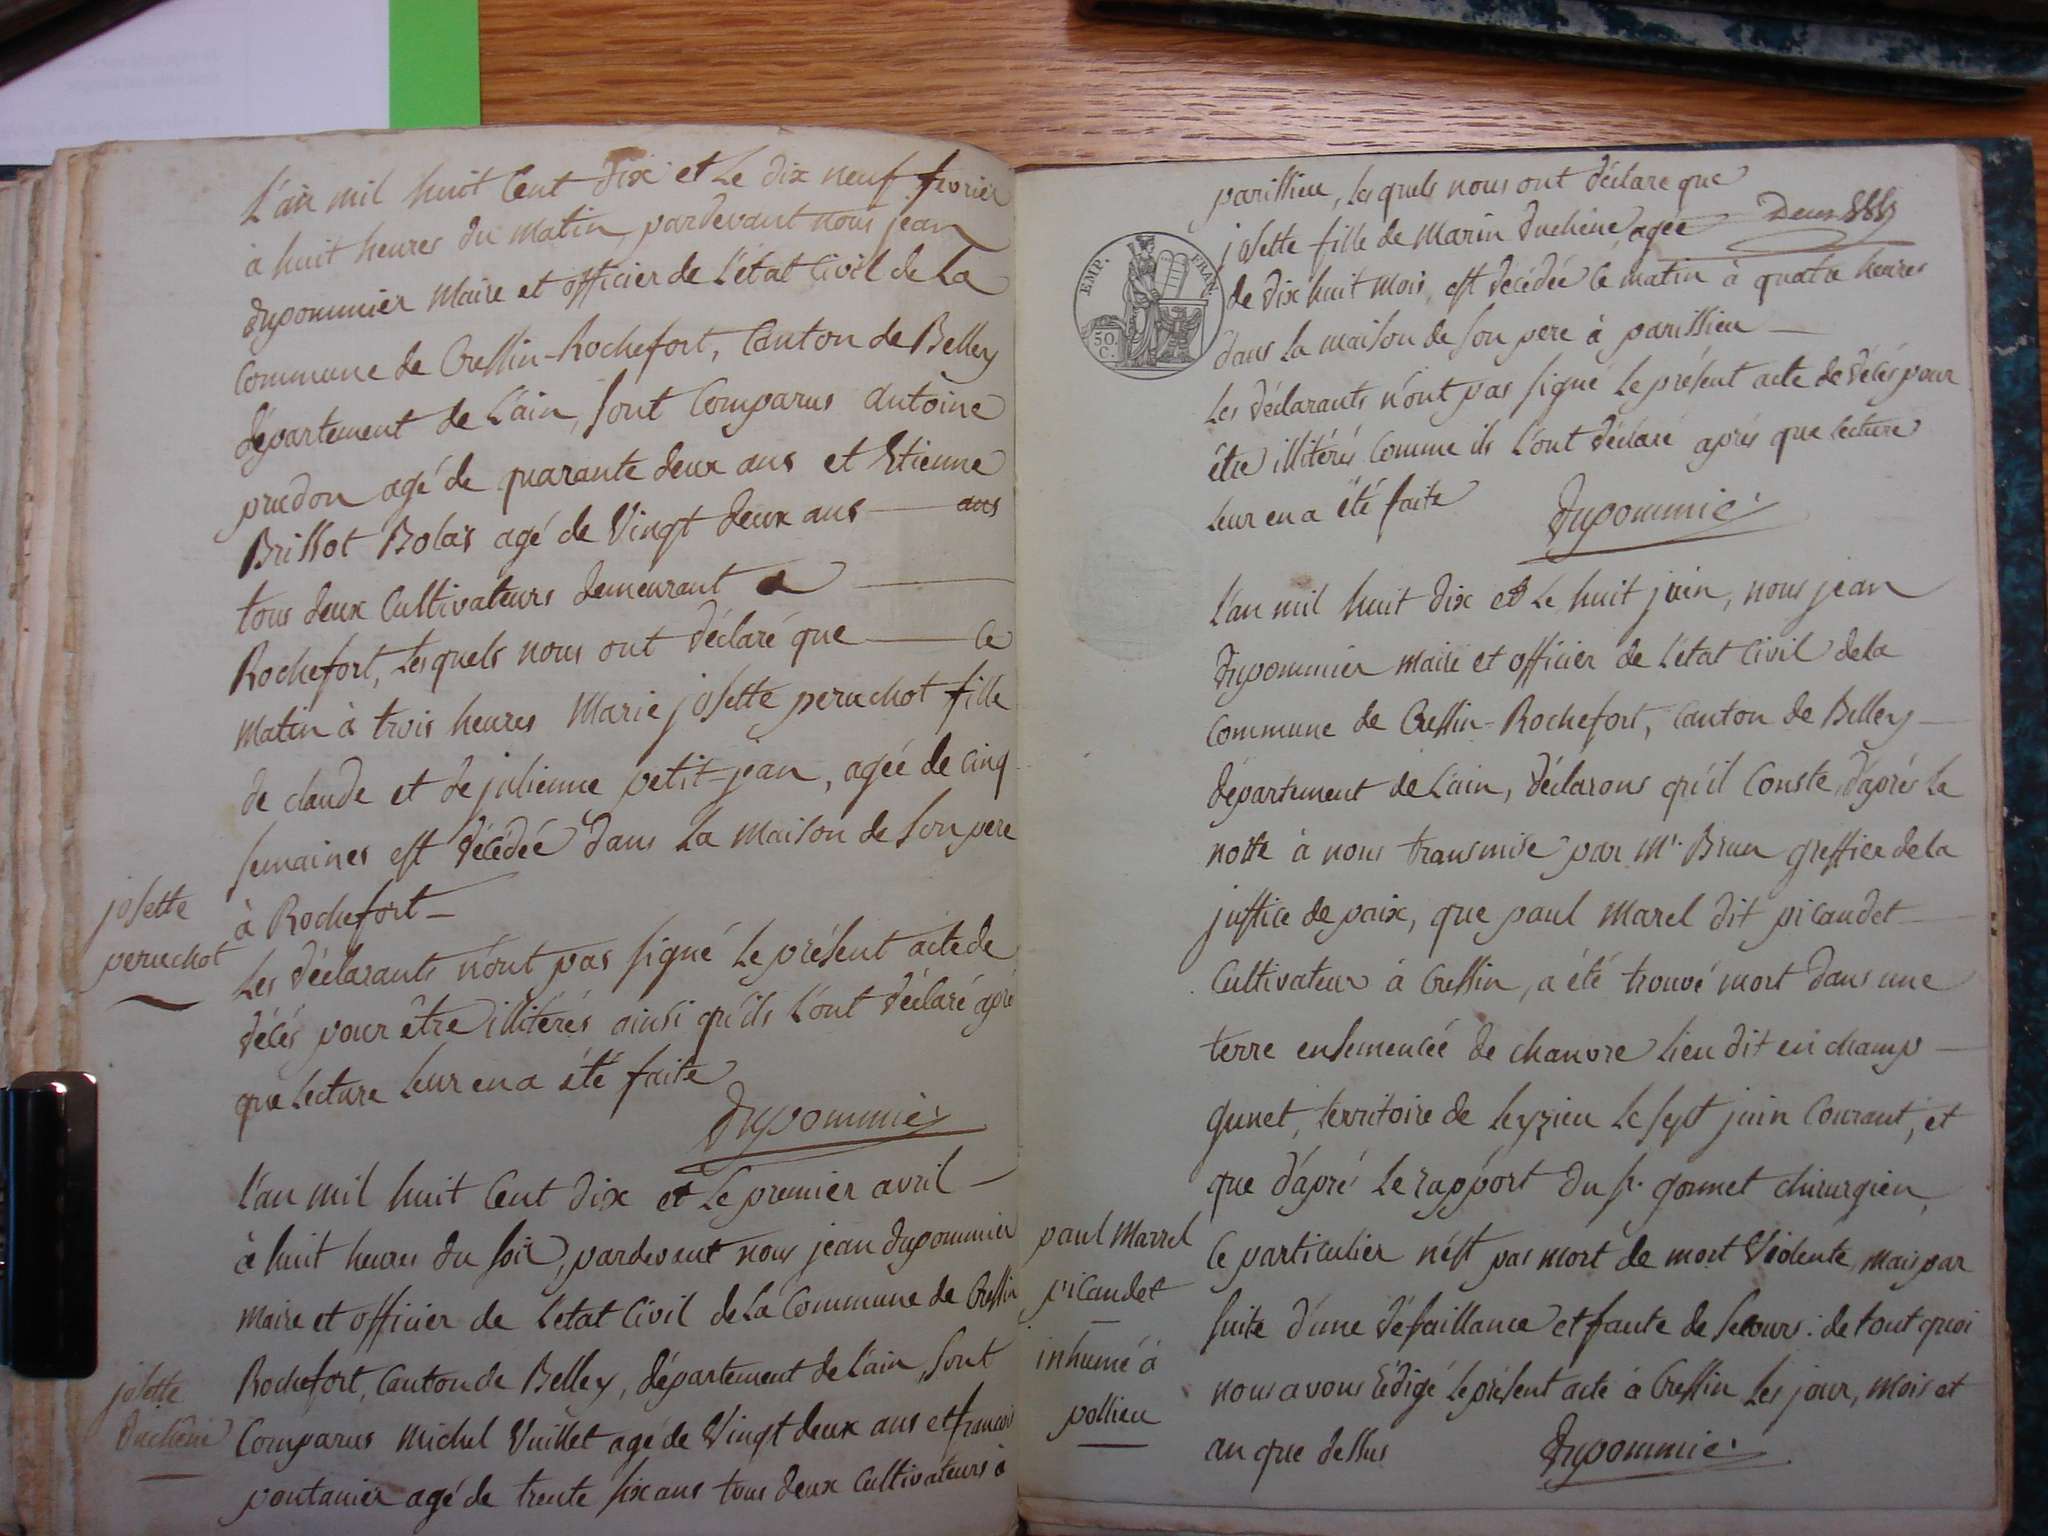 L'an mil huit Cent dix et Le dix neuf fevrier
à huit heures du matin, pardevant nous jean
dupommier Maire et officier de L'état Civil de La
Commune de Cressin-Rochefort, Canton de Belley
département de L'ain, sont Comparus Antoine
prudon agé de quarante deux ans et Etienne
Brissot Bolas agé de Vingt deux ans — ans
tous deux Cultivateurs demeurant a —
Rochefort, Lesquels nous ont déclaré que — Ce
Matin à trois heures Marie josette peruchot fille
de claude et de julienne petit-jean, agée de cinq
semaines est décédée dans La maison de son pere
josette
peruchot
à Rochefort —
Les déclarants n'ont pas signé Le présent acte de
décés pour être illitérés ainsi qu'ils L'ont déclaré apré
que Lecture Leur en a été faite
dupommier
L'an mil huit Cent dix et Le premier avril —
à huit heures du soir, pardevant nous jean dupommier
Maire et officier de L'etat Civil de La Commune de Cressin
josette
duchene
Rochefort, Canton de Belley, département de L'ain, sont
Comparus Michel Vuillet agé de Vingt deux ans et francois
pontanier agé de trente six ans tous deux Cultivateurs à
parissieu, Lesquels nous ont déclaré que
josette fille de Marin duchene agée
EMP. FRAN.
50.
C.
de dix huit mois, est décédée Ce matin à quatre heures
dans La maison de son pere à parissieu —
Les déclarants n'ont pas signé Le présent acte de décés pour
être illitérés Comme ils L'ont déclaré aprés que Lecture
Leur en a été faite
dupommier
L'an mil huit dix et Le huit juin, nous jean
dupommier maire et officier de L'état Civil de La
Commune de Cressin-Rochefort, Canton de Belley —
département de L'ain, déclarons qu'il Conste, d'aprés La
notte à nous transmise par Mr. Brun greffier de La
justice de paix, que paul Marel dit picaudet —
Cultivateur à Cressin, a été trouvé mort dans une
terre ensemencée de chanvre Lieu dit en champ —
gunet, territoire de Leyzieu Le sept juin Courant, et
que d'apré Le rapport du sr. gonnet chirurgien,
paul Marrel
picaudet
—
inhumé à
pollieu
Ce particulier n'est pas mort de mort Violente, mais par
suite d'une défaillance et faute de secours : de tout quoi
nous avons rédigé Le présent acte à Cressin Les jour, mois et
an que dessus
dupommier